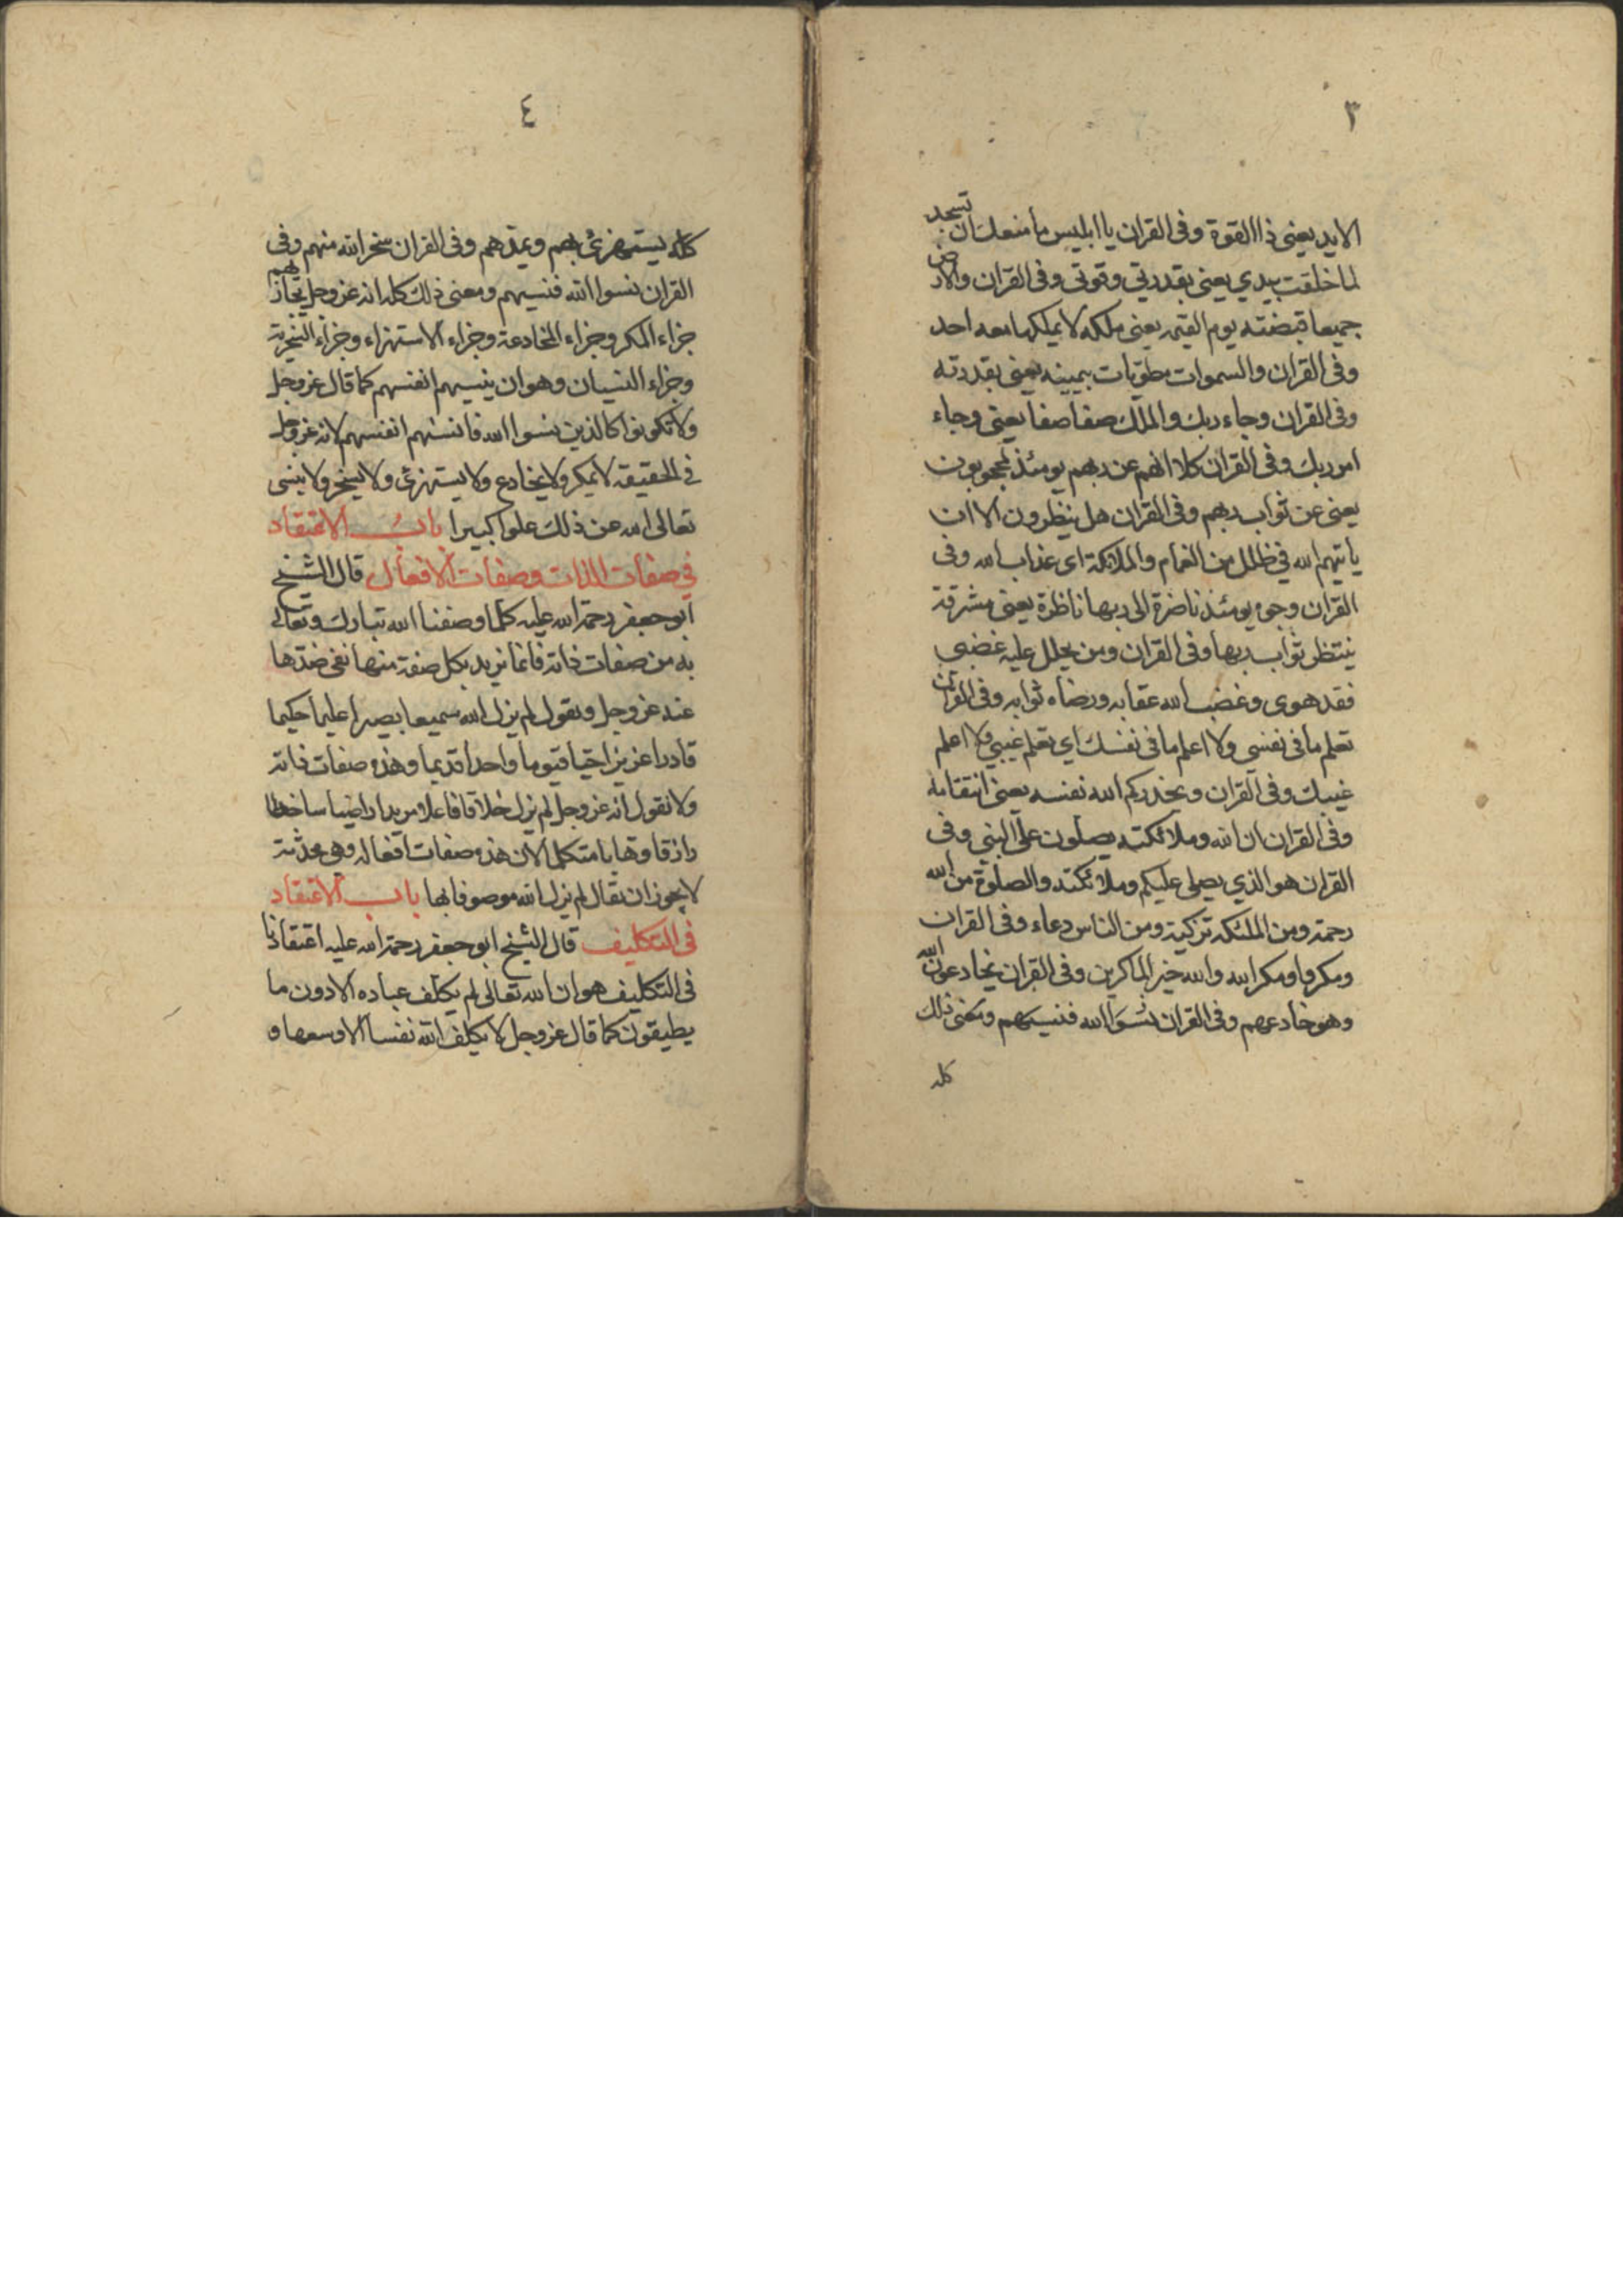 ٣
الايد يعنى ذا القوة وفى القران يا ابليس ما منعك ان تسجد
لما خلقت بيدي يعنى بقدرتي وقوتي وفى القران والارض
جميعا قبضته يوم القيمة يعنى ملكه لا يملكها معه احد
وفى القران والسموات مطويات بيمينه يعنى بقدرته
وفى القران وجاء ربك والملك صفا صفا يعنى وجاء
امر ربك وفى القران كلا انهم عن ربهم يومئذ لمحجوبون
يعنى عن ثواب ربهم وفى القران هل ينظرون الا ان
ياتيهم الله في ظلل من الغمام والملائكة اى عذاب الله وفى
القران وجوه يومئذ ناضرة الى ربها ناظرة يعنى مشرقة
ينتظر ثواب ربها وفى القران ومن يحلل عليه غضبى
فقد هوى وغضب الله عقابه ورضاه ثوابه وفى القران
تعلم ما فى نفسى ولا اعلم ما فى نفسك اي تعلم غيبي ولا اعلم
غيبك وفى القران ويحذركم الله نفسه يعنى انتقامه
وفى القران ان الله وملائكته يصلون على النبي وفى
القران هو الذي يصلى عليكم وملائكته والصلوة من الله
رحمة ومن الملئكة تزكية ومن الناس دعاء وفى القران
ومكروا ومكر الله والله خير الماكرين وفى القران يخادعون الله
وهو خادعهم وفى القران نسوا الله فنسيهم ومعنى ذلك
كله
٤
كله يستهزئ بهم ويمدهم وفى القران سخر الله منهم وفى
القران نسوا الله فنسيهم ومعنى ذلك كله انه عز وجل يجازيهم
جزاء المكر وجزاء المخادعة وجزاء الاستهزاء وجزاء السخرية
وجزاء النسيان وهو ان ينسيهم انفسهم كما قال عز وجل
ولا تكونوا كالذين نسوا الله فانسهم انفسهم لانه عز وجل
في الحقيقة لا يمكر ولا يخادع ولا يستهزئ ولا يسخر ولا ينسى
تعالى الله عن ذلك علوا كبيرا باب الاعتقاد
في صفات الذات وصفات الافعال قال الشيخ
ابو جعفر رحمة الله عليه كلما وصفنا الله تبارك وتعالى
به من صفات ذاته فانما نريد بكل صفة منها نفى ضدها
عنه عز وجل ونقول لم يزل الله سميعا بصيرا عليما حكيما
قادرا عزيزا حيا قيوما واحدا قديما وهذه صفات ذاته
ولا نقول انه عز وجل لم يزل خلاقا فاعلا مريدا راضيا ساخطا
رازقا وهابا متكلما لان هذه صفات افعاله وهي محدثة
لا يجوز ان يقال لم يزل الله موصوفا بها باب الاعتقاد
فى التكليف قال الشيخ ابو جعفر رحمة الله عليه اعتقادنا
فى التكليف هو ان الله تعالى لم يكلف عباده الا دون ما
يطيقون كما قال عز وجل لا يكلف الله نفسا الا وسعها و